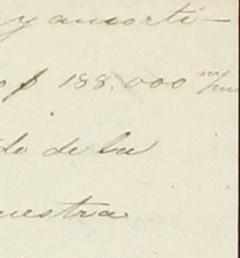 y amorti-
o $ 188.000 m/n
do de la
uestra